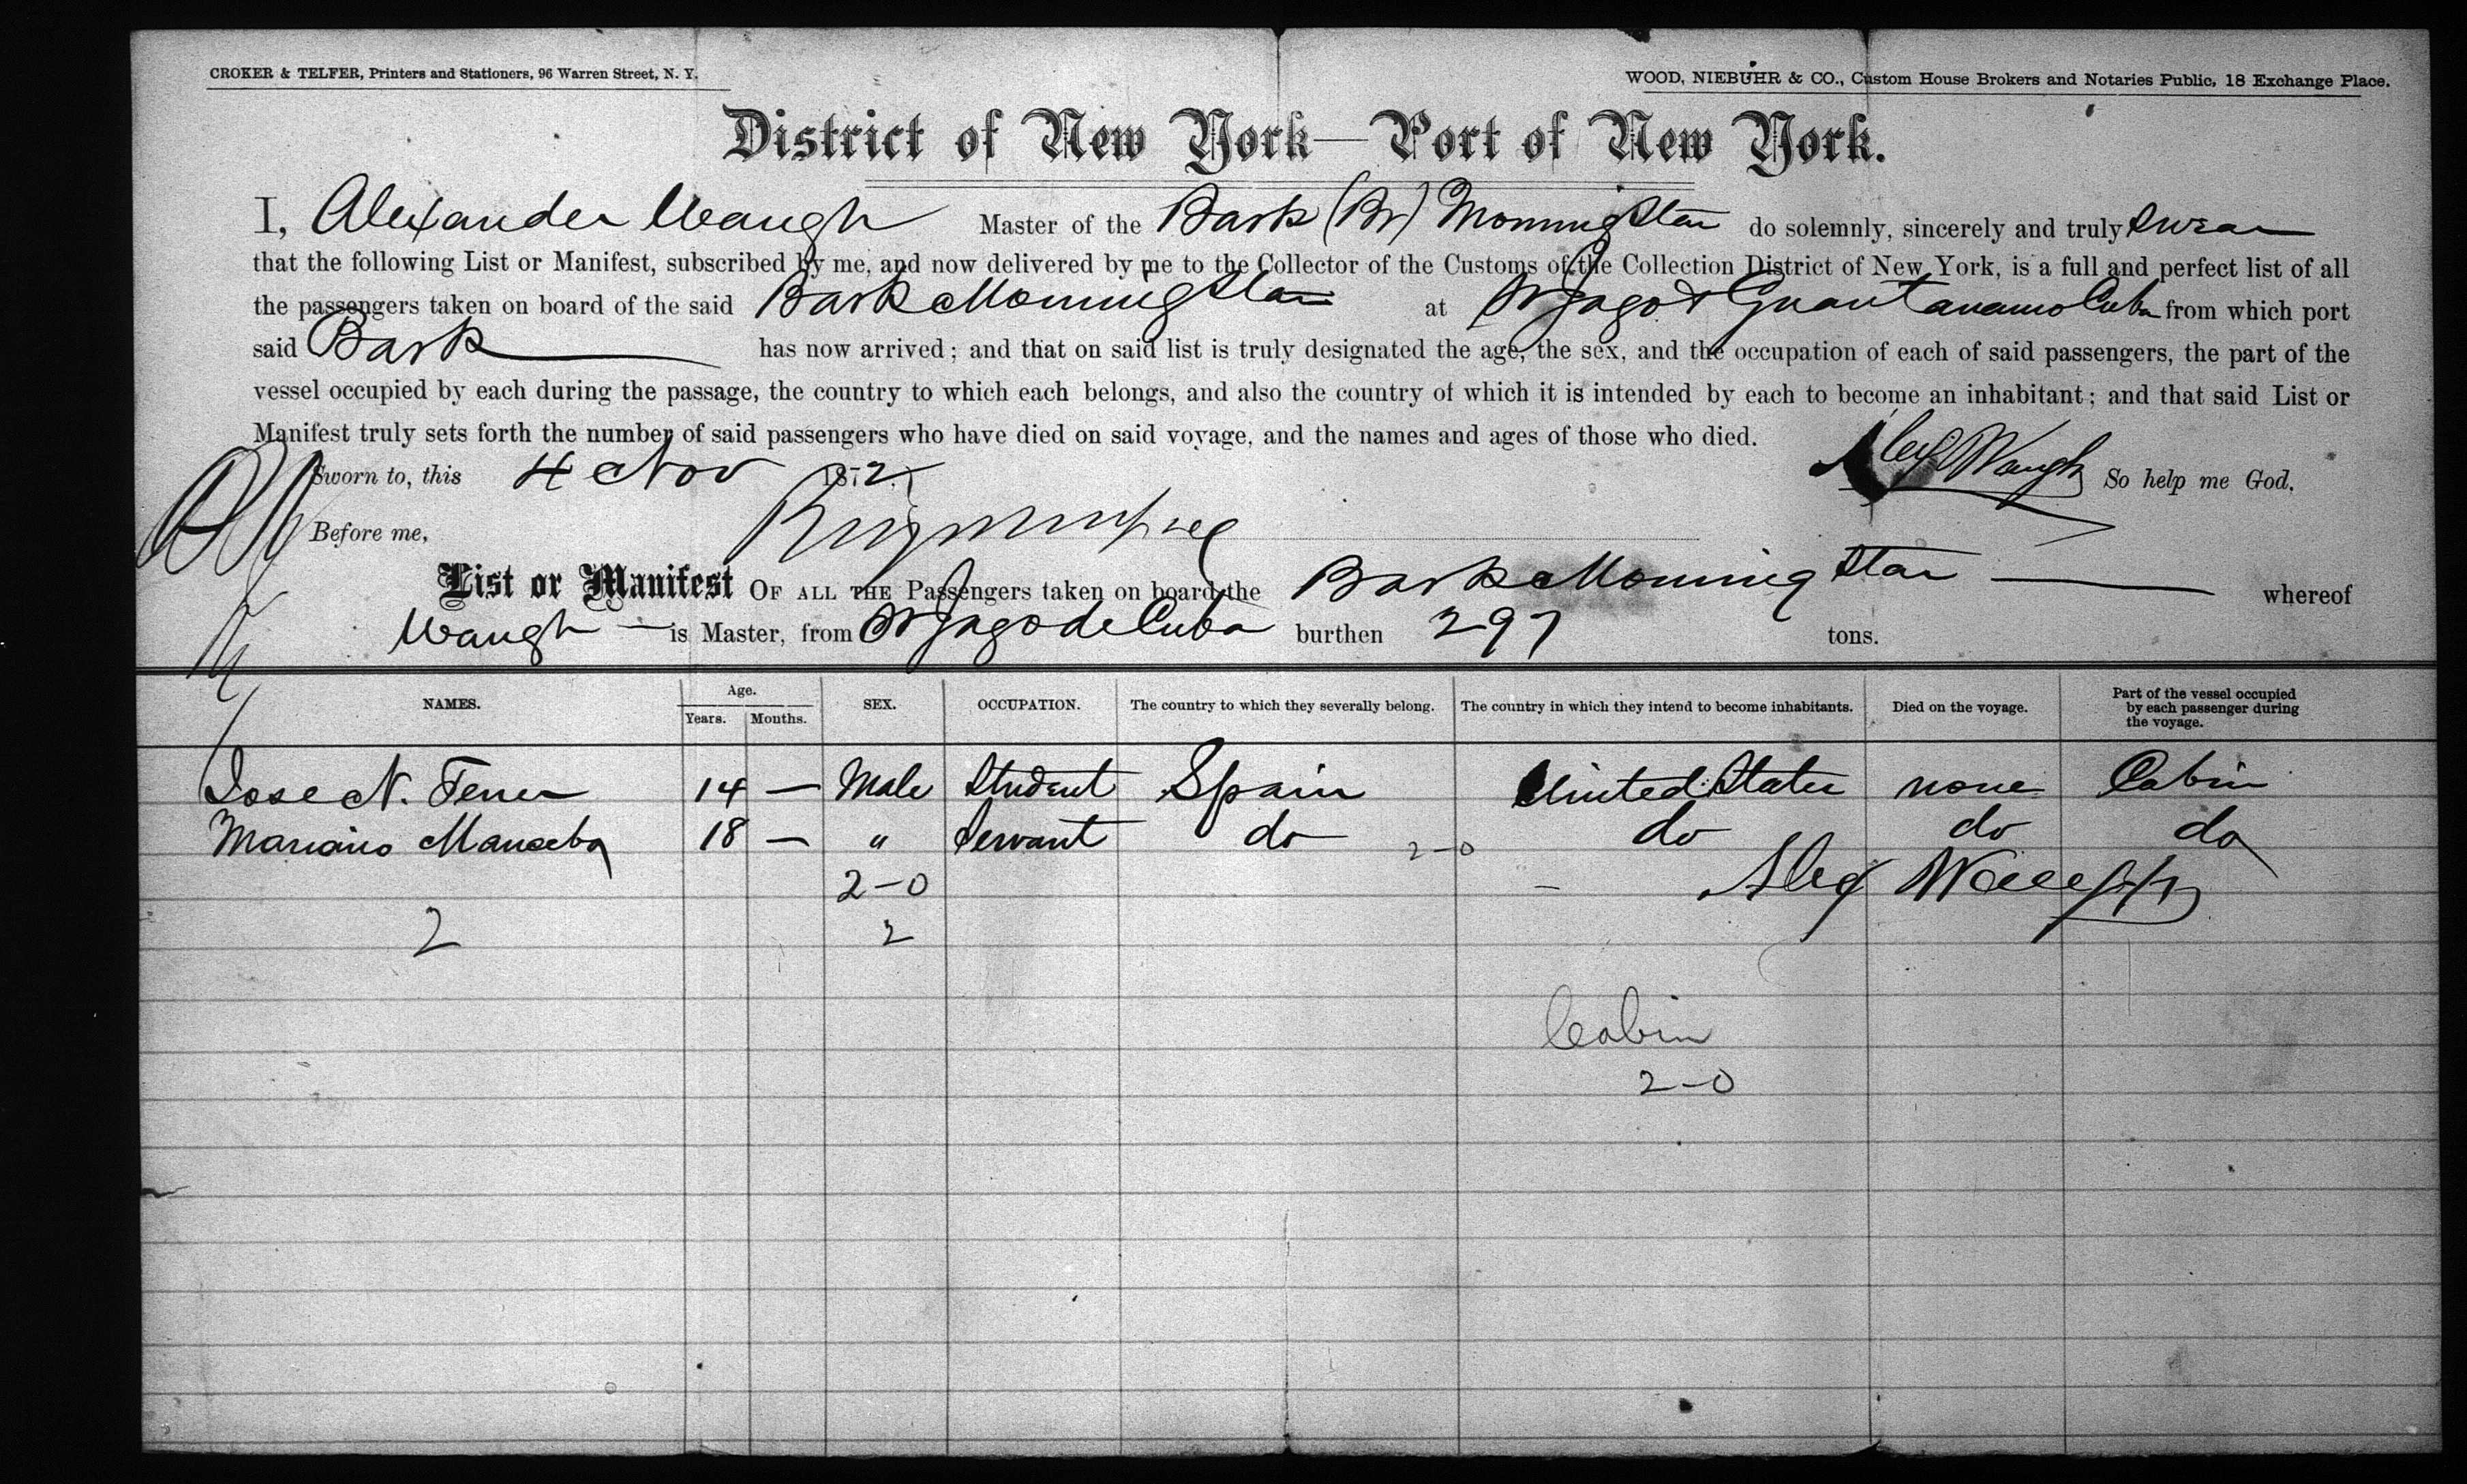 CROKER & TELFER, Printers and Stationers, 96 Warren Street, N. Y.
WOOD, NIEBUHR & CO., Custom House Brokers and Notaries Public, 18 Exchange Place.
District of New York—Port of New York.
I, Alexander Waugh Master of the Bark (Br) Morning Star do solemnly, sincerely and truly swear
that the following List or Manifest, subscribed by me, and now delivered by me to the Collector of the Customs of the Collection District of New York, is a full and perfect list of all
the passengers taken on board of the said Bark Morning Star at St Jago & Guantanamo Cuba from which port
said Bark has now arrived; and that on said list is truly designated the age, the sex, and the occupation of each of said passengers, the part of the
vessel occupied by each during the passage, the country to which each belongs, and also the country of which it is intended by each to become an inhabitant; and that said List or
Manifest truly sets forth the number of said passengers who have died on said voyage, and the names and ages of those who died.
Sworn to, this 4 Nov 1872 Alex Waugh So help me God.
Before me,
List or Manifest OF ALL THE Passengers taken on board the Bark Morning Star whereof
Waugh is Master, from St Jago de Cuba burthen 297 tons.
NAMES. Age. Years. Months. SEX. OCCUPATION. The country to which they severally belong. The country in which they intend to become inhabitants. Died on the voyage. Part of the vessel occupied by each passenger during the voyage.
Jose N. Ferrer 14 — Male Student Spain United States none Cabin
Mariano Manceba 18 — " Servant do 2-0 do do do
2-0 Alex Waugh
2 2
Cabin
2-0